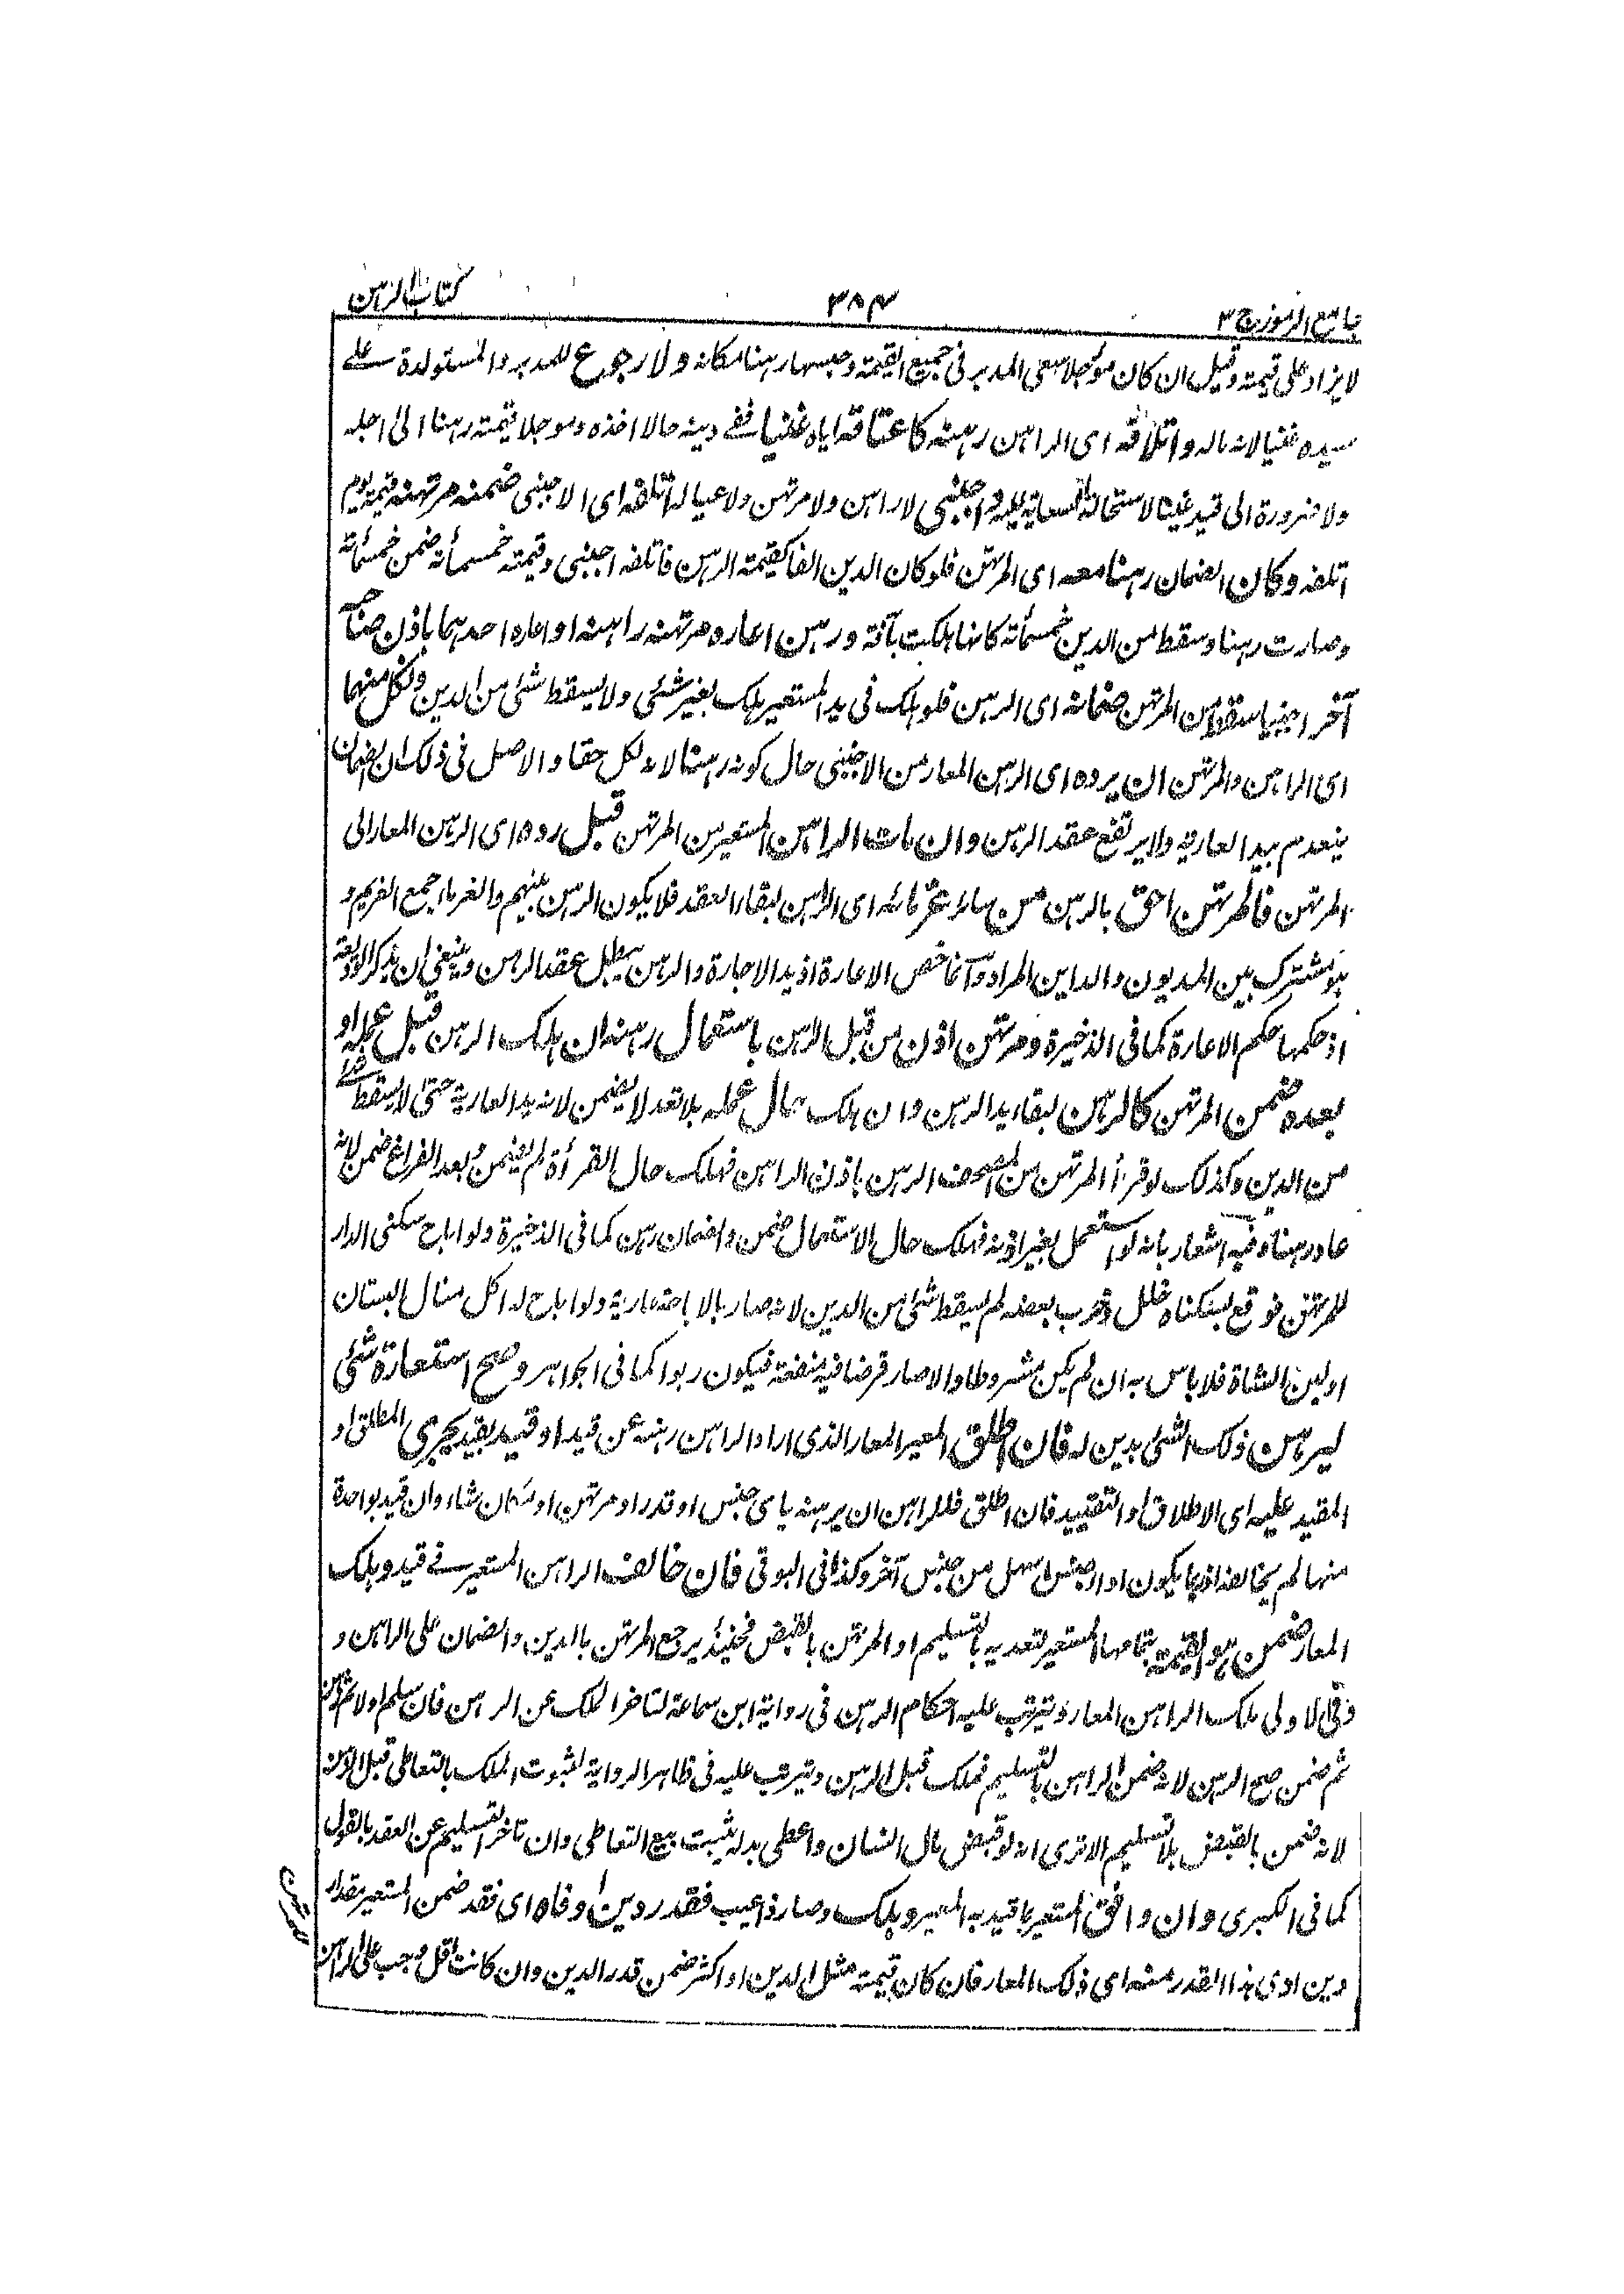 جامع الرموز ج ٣
٣٨٤
كتاب الرهن
لا يزاد على قيمته وقيل ان كان موجلا سعى المدبر فى جميع القيمة وحبسها رهنا مكانه ولا رجوع للمدبر والمستولدة على
سيده غنيا لانه ماله واتلافه اى الراهن رهنه كاعتاقه اياه غنيا ففى دينه حالا اخذه وموجلا قيمته رهنا الى اجله
ولا ضرورة الى قيد غنيا لاستحالة السعاية عليه واجنبى لا راهن ولا مرتهن ولا عياله اتلفه اى الاجنبى ضمنه مرتهنه قيمته يوم
اتلفه وكان الضمان رهنا معه اى المرتهن فلو كان الدين الفا كقيمة الرهن فاتلفه اجنبى وقيمته خمسمأة ضمن خمسمأة
وصارت رهنا وسقط من الدين خمسمأة كانها هلكت بآفة ورهن اعاره مرتهنه راهنه او اعاره احدهما باذن صاحبه
آخر اجنبيا سقط من المرتهن ضمانه اى الرهن فلو هلك فى يد المستعير هلك بغير شئى ولا يسقط شئى من الدين ولكل منهما
اى الراهن والمرتهن ان يرده اى الرهن المعار من الاجنبى حال كونه رهنا لان لكل حقا والاصل فى ذلك ان الضمان
ينعدم بيد العارية ولا يرتفع عقد الرهن وان مات الراهن المستعير من المرتهن قبل رده اى الرهن المعار الى
المرتهن فالمرتهن احق بالرهن من سائر غرمائه اى الراهن لبقاء العقد فلا يكون الرهن بينهم والغرماء جمع الغريم و
هو مشترك بين المديون والداين المراد وانما خص الاعارة اذ بيد الاجارة والرهن يبطل عقد الرهن وينبغى ان يذكر الوديعة
اذ حكمها حكم الاعارة كما فى الذخيرة ومرتهن اذن من قبل الراهن باستعمال رهنه ان هلك الرهن قبل عمله او
بعده ضمن المرتهن كالرهن لبقاء يد الرهن وان هلك حال عمله بلا تعد لا يضمن لانه يد العارية حتى لا يسقط شئ
من الدين وكذلك لو قرأ المرتهن من المصحف الرهن باذن الراهن فهلك حال القرأة لم يضمن وبعد الفراغ ضمن لانه
عاد رهنا وفيه اشعار بانه لو استعمل بغير اذنه فهلك حال الاستعمال ضمن والضمان رهن كما فى الذخيرة ولو اباح سكنى الدار
للمرتهن فوقع بسكناه خلل وخرب بعضه لم يسقط شئ من الدين لانه صار بالاباحة عارية ولو اباح له اكل منال البستان
او لبن الشاة فلا باس به ان لم يكن مشروطا والا صار قرضا فيه منفعة فيكون ربوا كما فى الجواهر وصح استعارة شئى
ليرهن ذلك الشئ بدين له فان اطلق المعير المعار الذى اراد الراهن رهنه عن قيد او قيد بقيد يجرى المطلق او
المقيد عليه اى الاطلاق او التقييد فان اطلق فللراهن ان يرهنه باى جنس او قدر او مرتهن او مكان شاء وان قيد بواحدة
منها لم يخالفه اذ ربما يكون اداء جنس اسهل من جنس آخر وكذا فى البوقى فان خالف الراهن المستعير فى قيد وهلك
المعار ضمن هو القيمة بتمامها المستعير لتعديه بالتسليم او المرتهن بالقبض فحينئذ يرجع المرتهن بالدين والضمان على الراهن و
وفى الاولى ملك الراهن المعار وتيرتب عليه احكام الرهن فى رواية ابن سماعة لتاخر الملك عن الرهن فان سلم اولا ثم رهن
ثم ضمن صح الرهن لانه ضمن الراهن بالتسليم فملك قبل الرهن ويترتب عليه فى ظاهر الرواية لثبوت الملك بالتعاطى قبل الرهن
لانه ضمن بالقبض بلا تسليم الا ترى انه لو قبض مال انسان واعطى بدله يثبت بيع التعاطى وان تاخر التسليم عن العقد بالقول
كما فى الكبرى وان وافق المستعير ما قيد به المعير وهلك وصار ذا عيب فقدر دين اوفاه اى فقد ضمن المستعير مقدار
دين ادى هذا القدر منه اى ذلك المعار فان كان قيمته مثل الدين او اكثر ضمن قدر الدين وان كانت اقل وجب على الراهن